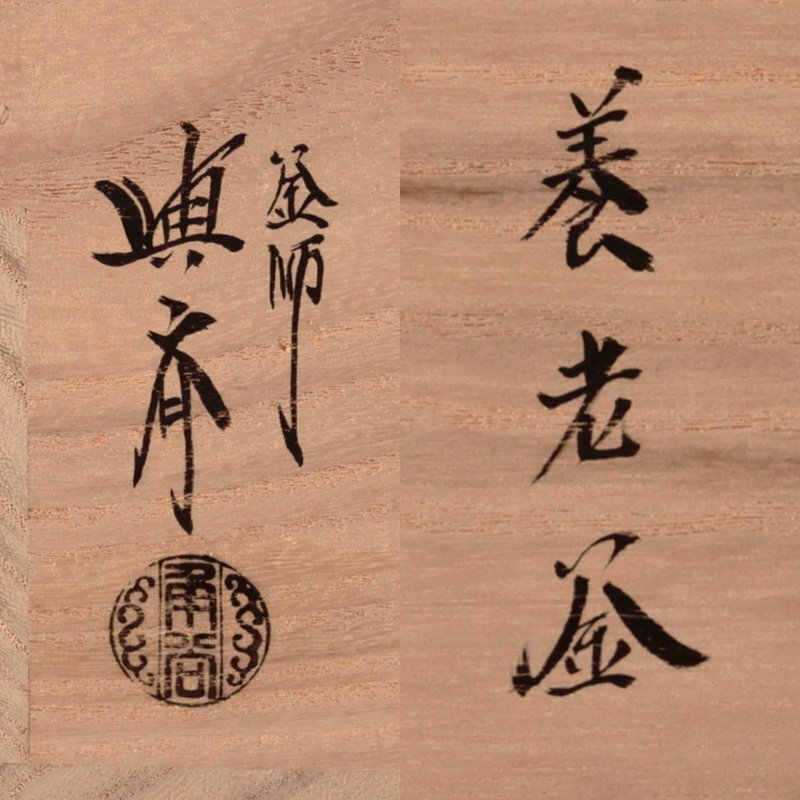 養老釜
釜師
興斎